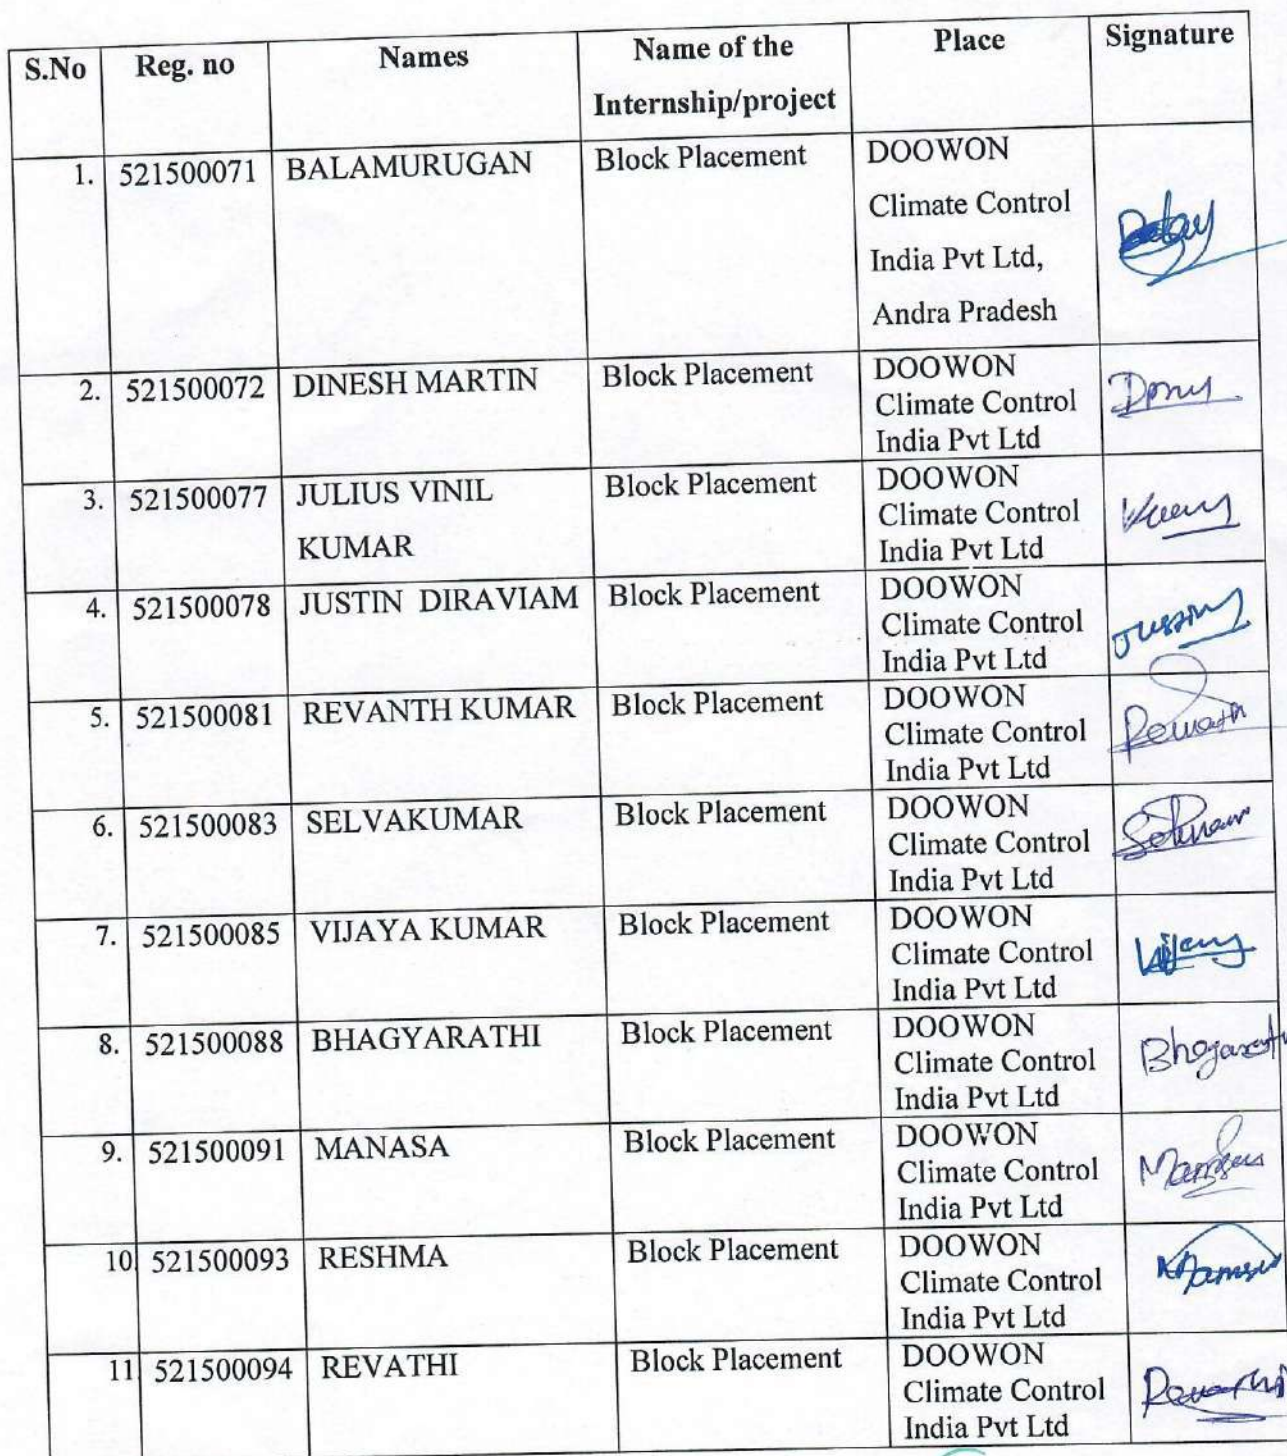 S.No Reg. no Names Name of the Place Signature
Internship/project
1. 521500071 BALAMURUGAN Block Placement DOOWON
Climate Control
India Pvt Ltd,
Andra Pradesh
2. 521500072 DINESH MARTIN Block Placement DOOWON
Climate Control
India Pvt Ltd
3. 521500077 JULIUS VINIL Block Placement DOOWON
KUMAR Climate Control
India Pvt Ltd
4. 521500078 JUSTIN DIRAVIAM Block Placement DOOWON
Climate Control
India Pvt Ltd
5. 521500081 REVANTH KUMAR Block Placement DOOWON
Climate Control
India Pvt Ltd
6. 521500083 SELVAKUMAR Block Placement DOOWON
Climate Control
India Pvt Ltd
7. 521500085 VIJAYA KUMAR Block Placement DOOWON
Climate Control
India Pvt Ltd
8. 521500088 BHAGYARATHI Block Placement DOOWON
Climate Control
India Pvt Ltd
9. 521500091 MANASA Block Placement DOOWON
Climate Control
India Pvt Ltd
10 521500093 RESHMA Block Placement DOOWON
Climate Control
India Pvt Ltd
11 521500094 REVATHI Block Placement DOOWON
Climate Control
India Pvt Ltd